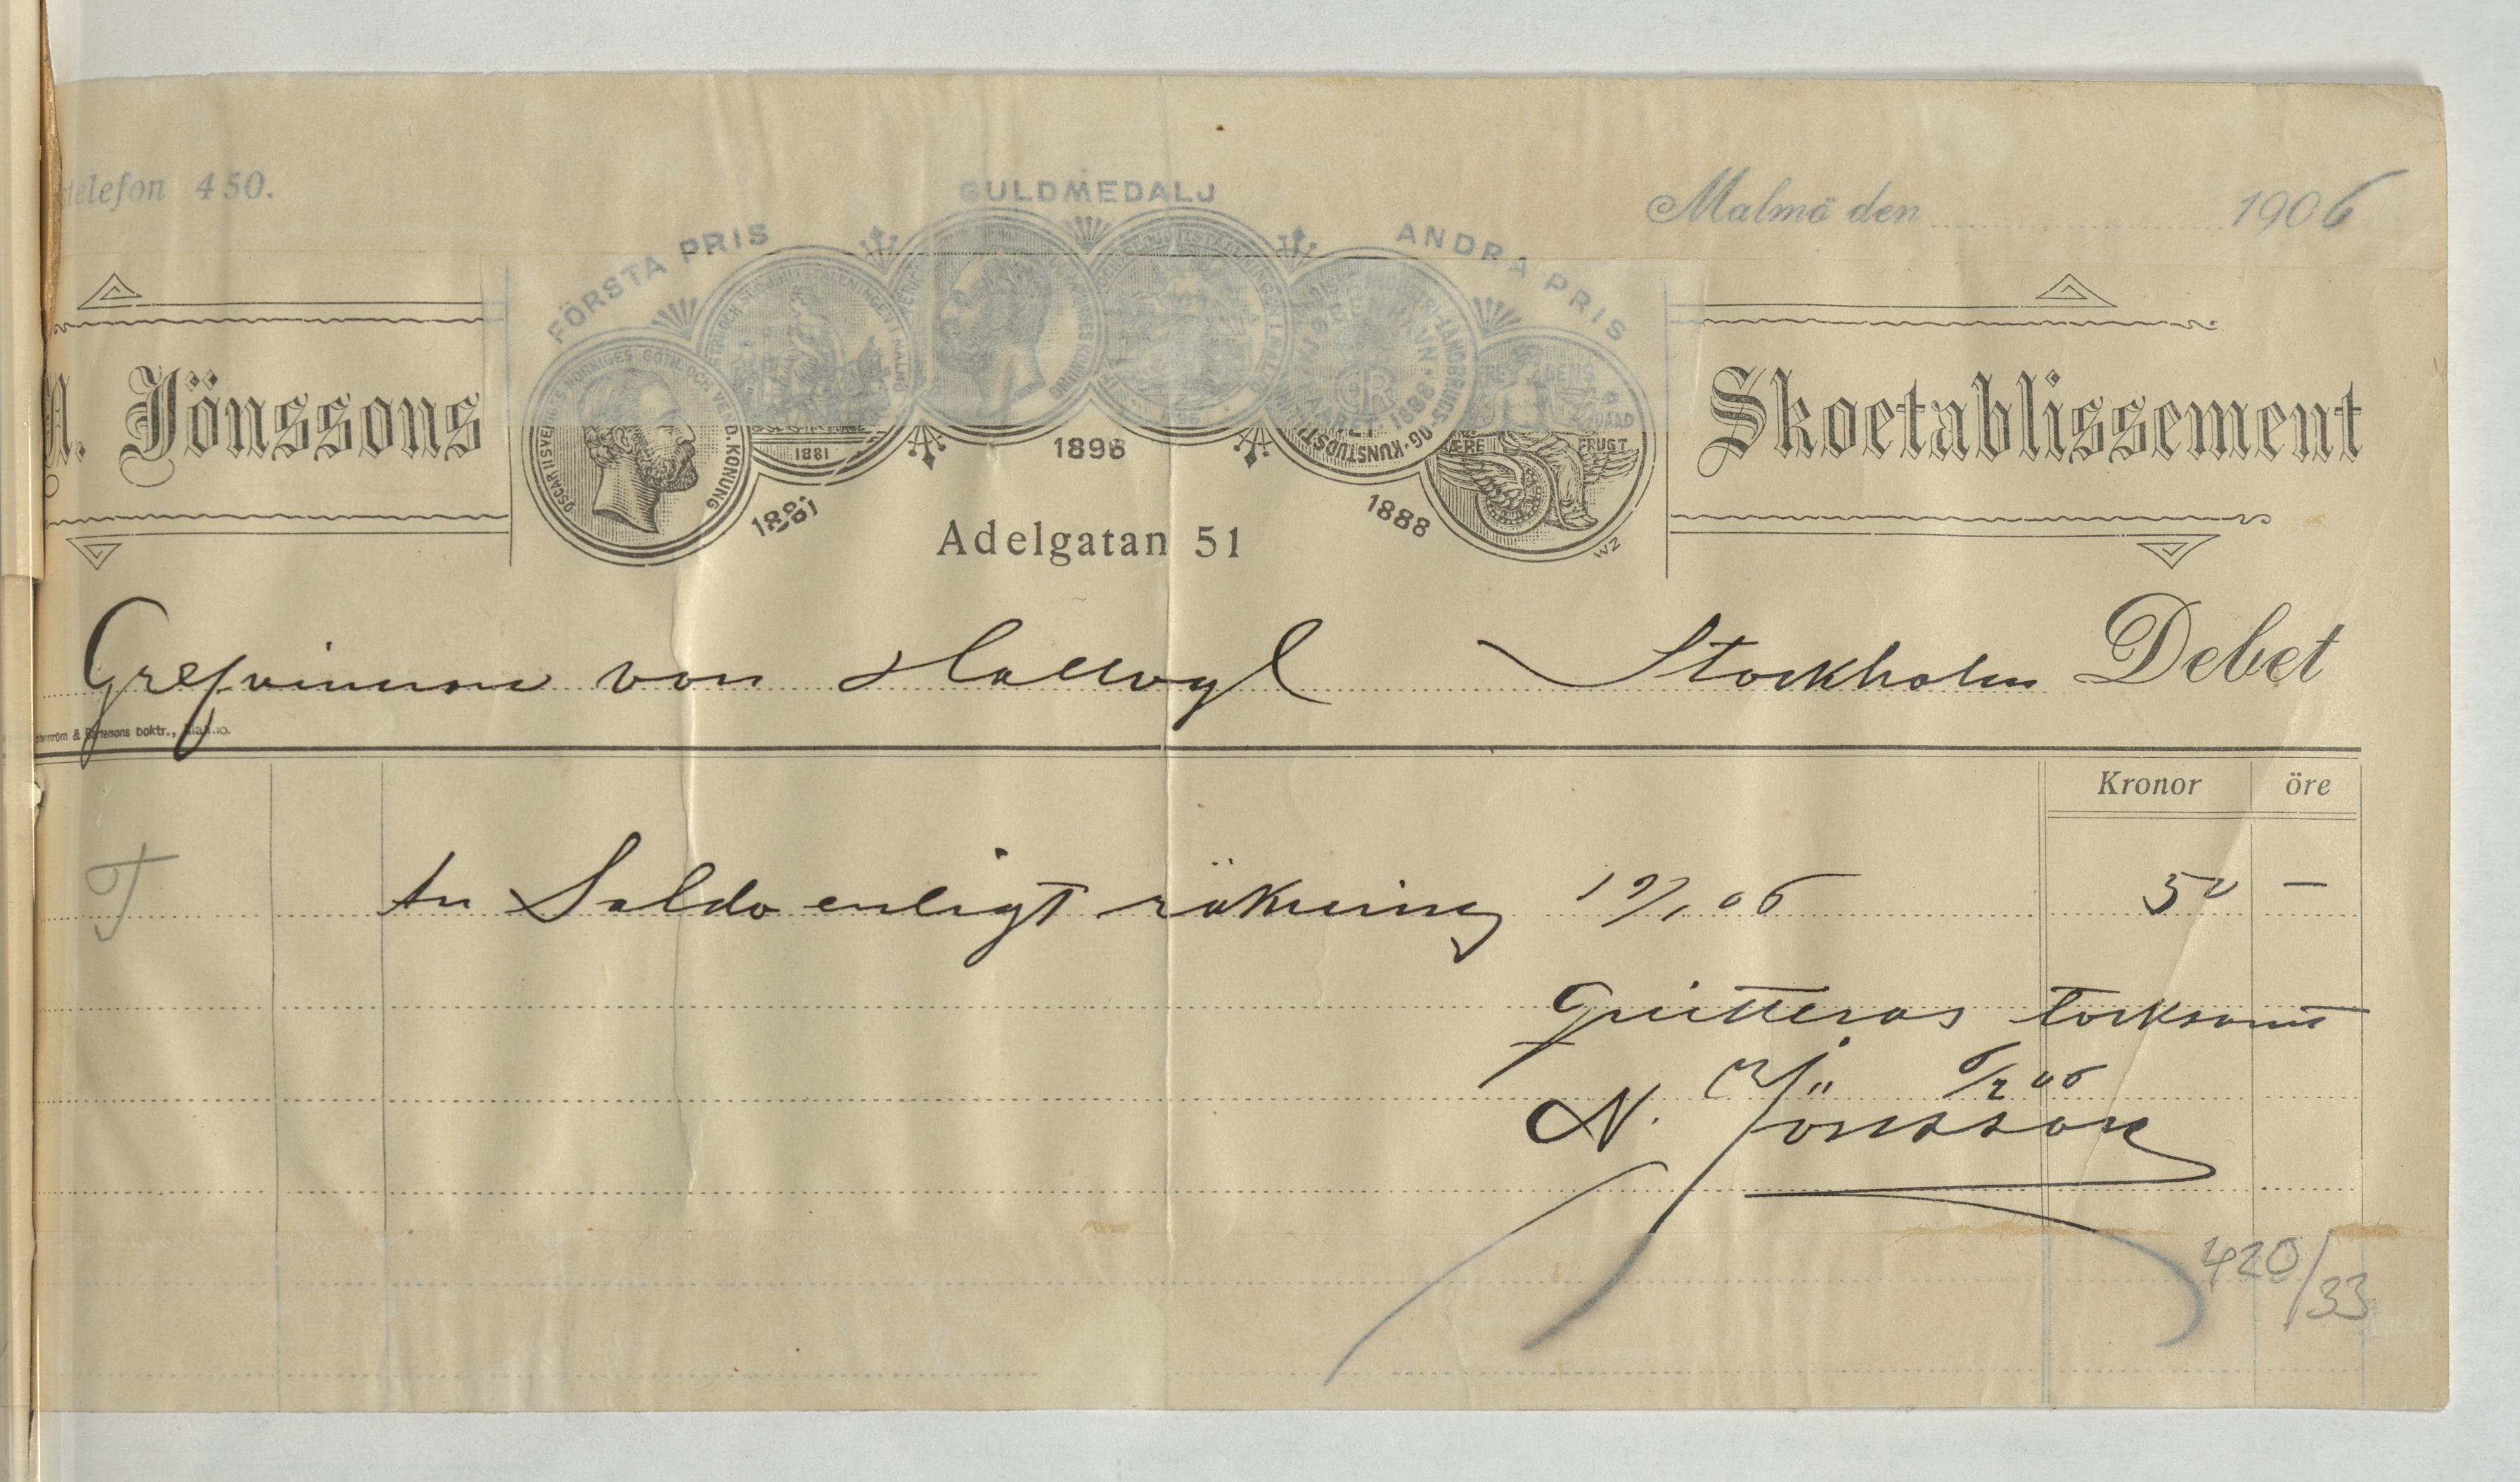 telefon 450.
Malmö den 1906
FÖRSTA PRIS
GULDMEDALJ
ANDRA PRIS
N. Jönssons
Skoetablissement
OSCAR II SVERIGES NORRIGES GÖTH. OCH VEND. KONUNG
1881
1881
1896
KJØBENHAVN 1888
1888
BÆRE FRUGT
WZ
Adelgatan 51
Grefvinnan von Hallwyl Stockholm Debet
& Bortelsons boktr.,
Kronor öre
T An Saldo enligt räkning 19/1 06 50 —
Qvitteras tacksamt
Mö 6/2 06
N. Jönsson
420/33